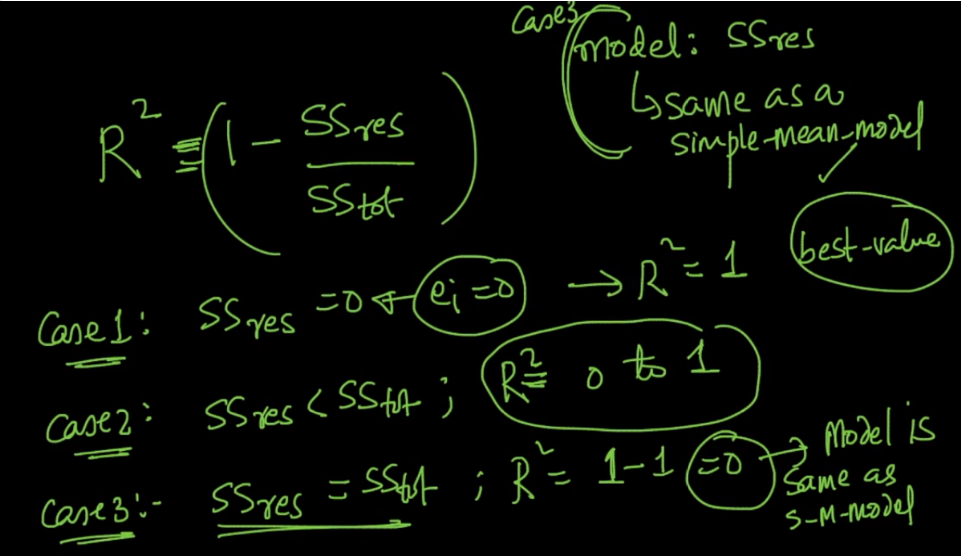 Case3
model: SSres
↳ same as a
simple-mean-model
R² ≡ (1 - SSres / SStot)
best-value
Case1: SSres = 0 ← ei = 0 → R² = 1
Case2: SSres < SStot ; R² ≡ 0 to 1
Case3:- SSres = SStot ; R² = 1-1 = 0 → Model is
same as
S-M-model